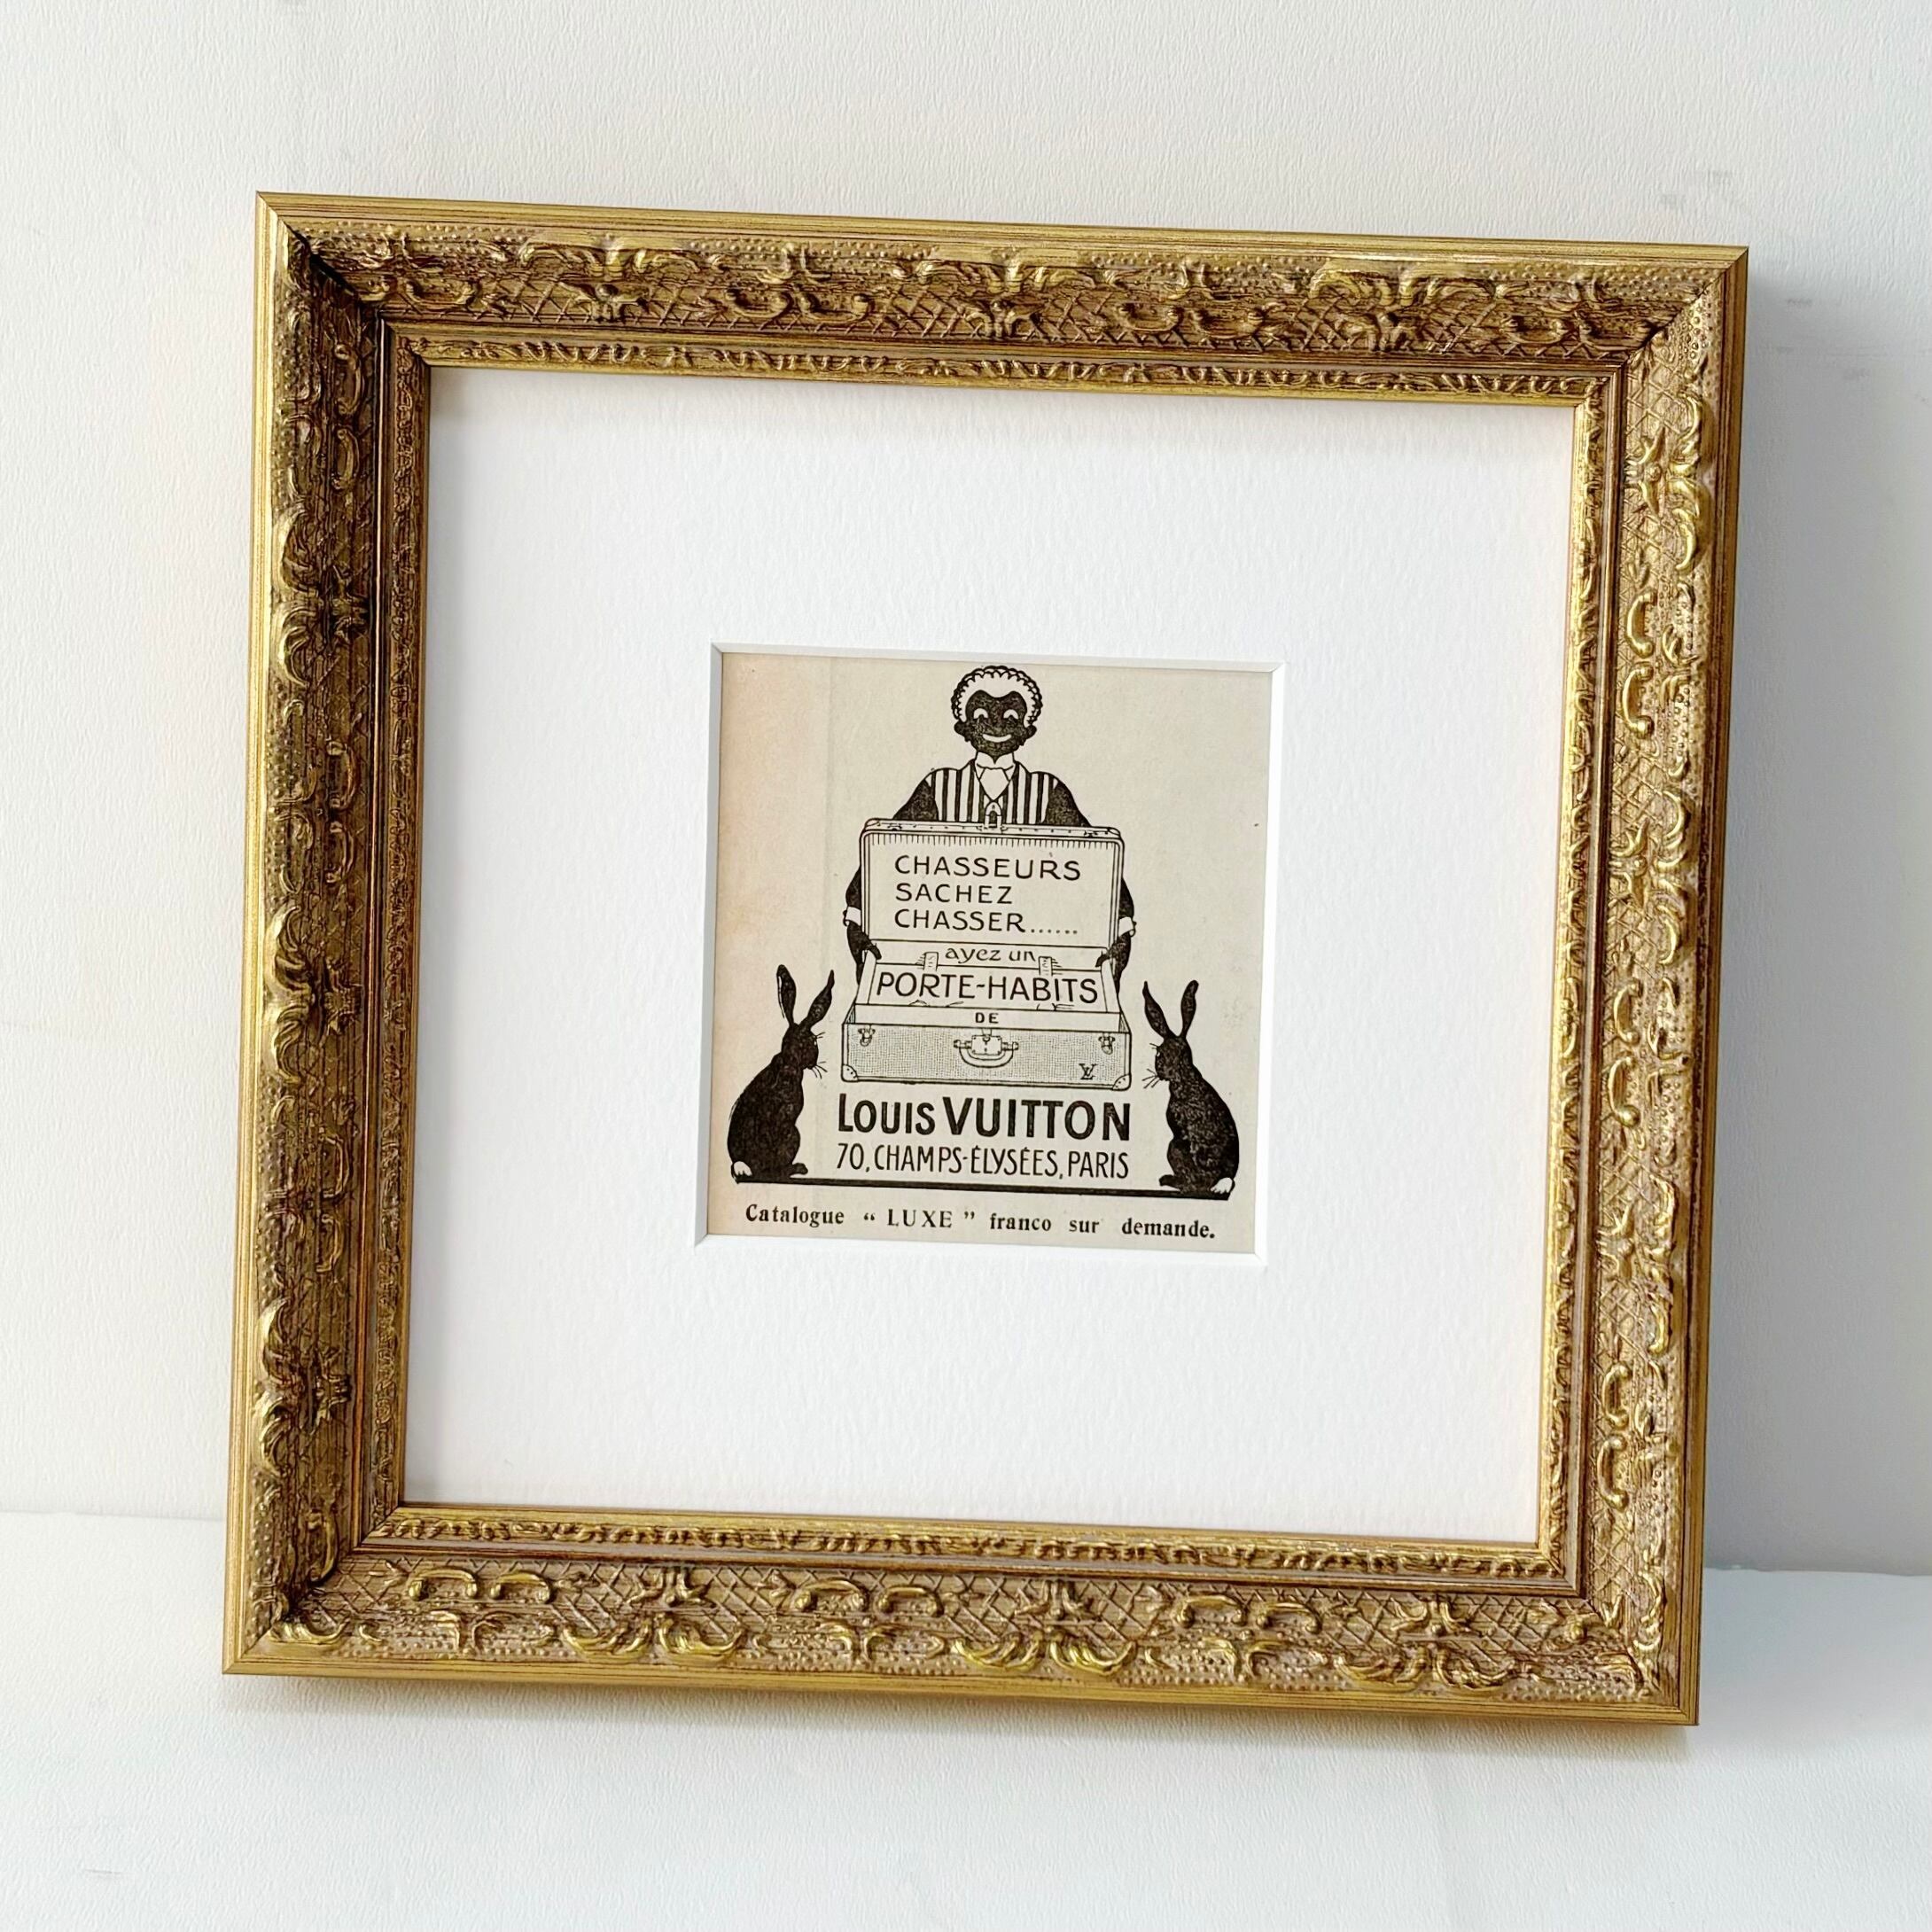 CHASSEURS
SACHEZ
CHASSER......
ayez un
PORTE-HABITS
DE
LV
LOUIS VUITTON
70, CHAMPS-ÉLYSÉES, PARIS
Catalogue “ LUXE ” franco sur demande.